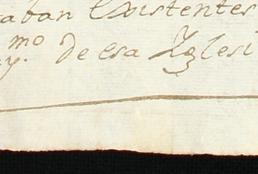 aban Existentes
mo y. de esa Yglesi